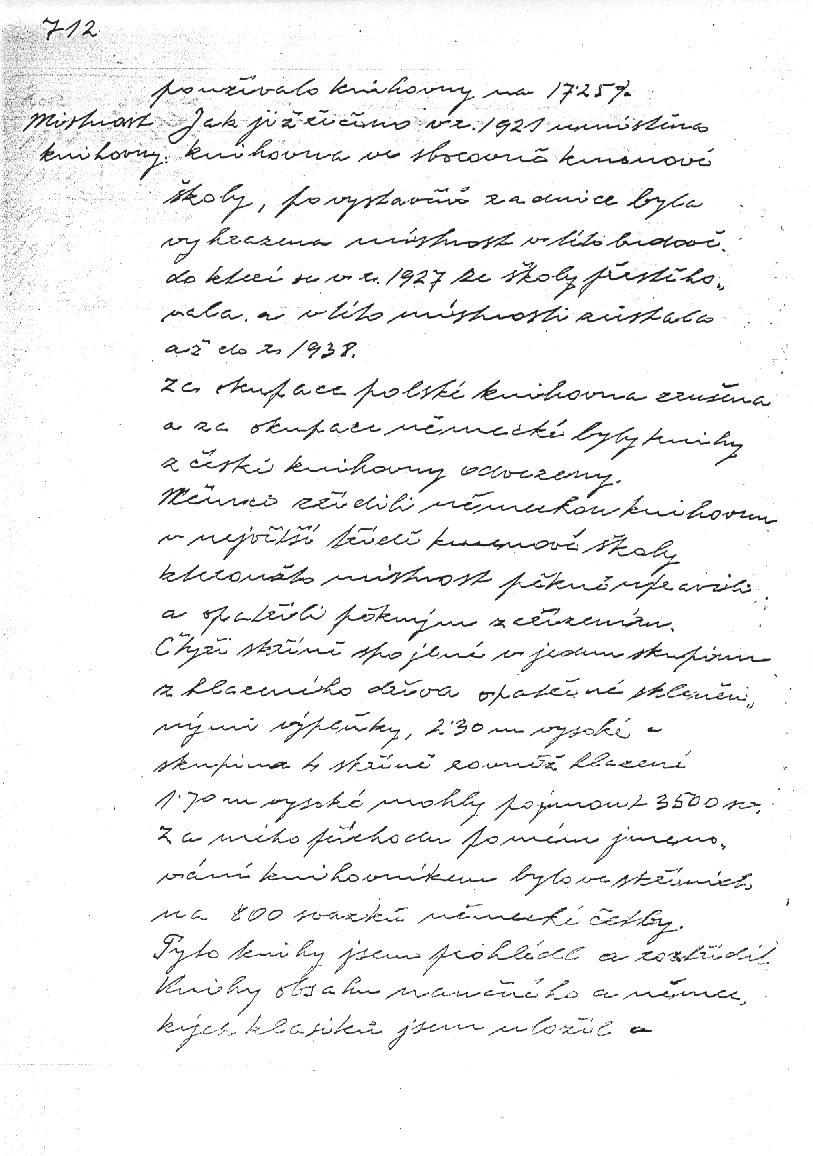 712
používalo knihovny na 17.25%.
Místnost Jak již řečeno v r. 1921 umístěna
knihovny. knihovna ve sborovně kmenové
školy, po vystavění radnice byla
vyhrazena místnost v této budově,
do které se v r. 1927 ze školy přestěho„
vala a v této místnosti zůstala
až do r. 1938.
Za okupace polské knihovna zrušena
a za okupace německé byly knihy
z české knihovny odvezeny.
Němci zřídili německou knihovnu
v největší třídě kmenové školy
kteroužto místnost pěkně upravili
a opatřili pěkným zařízením.
Čtyři skříně spojené v jednu skupinu
z hlazeného dřeva opatřené skleně„
nými výplňky, 2.30 m vysoké a
skupina 4 skříně rovněž hlazené
1.70 m vysoké mohly pojmout 3500 sv.
Za mého příchodu po mém jmeno„
vání knihovníkem bylo ve skříních
na 800 svazků německé četby.
Tyto knihy jsem prohlédl a roztřídil.
Knihy obsahu naučného a němec„
kých klasiků jsem uložil a